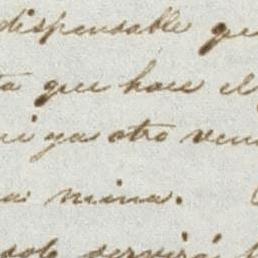 dispensable que
ta que hace el
ni ya otro ven
a mina.
solo servirá